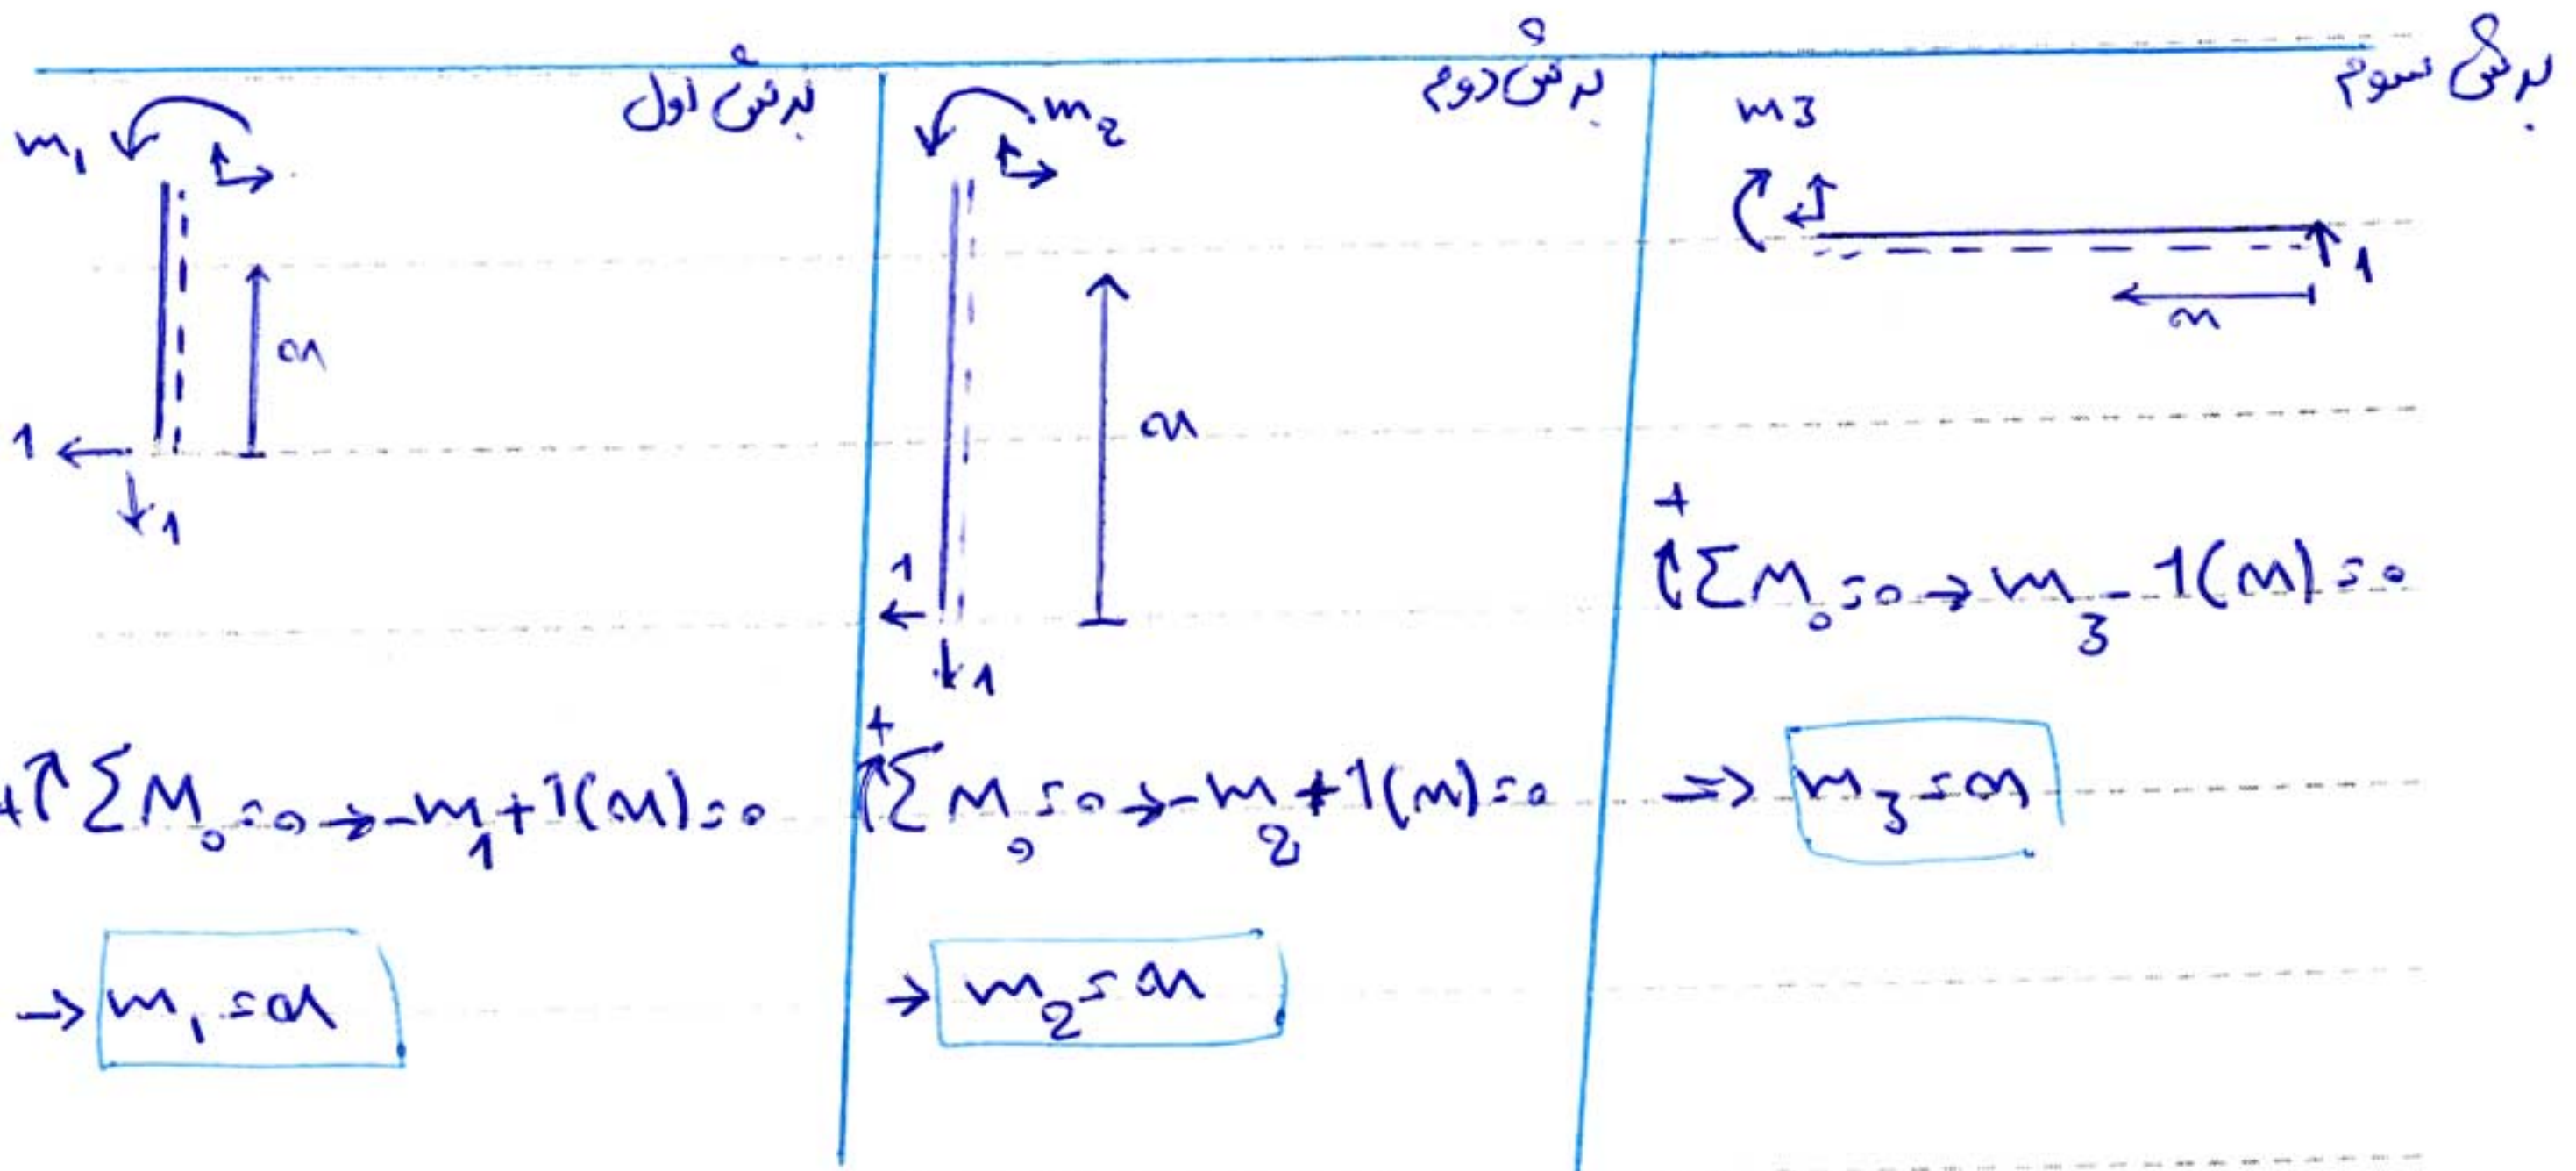 برش اول
m₁
x
1
1
+↑ ΣM₀=0 → -m₁+1(x)=0
→ m₁=x
برش دوم
m₂
x
1
1
+↑ ΣM₀=0 → -m₂+1(x)=0
→ m₂=x
برش سوم
m3
1
x
+↑ ΣM₀=0 → m₃-1(x)=0
⇒ m₃=x